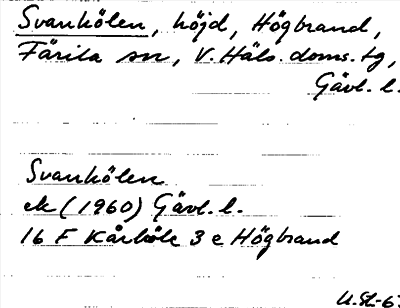 Svankölen, höjd, Högbrand,
Färila sn, V. Häls. doms. tg,
Gävl. l.
Svankölen
ek (1960) Gävl. l.
16 F Kårböle 3 e Högbrand
U.St-63